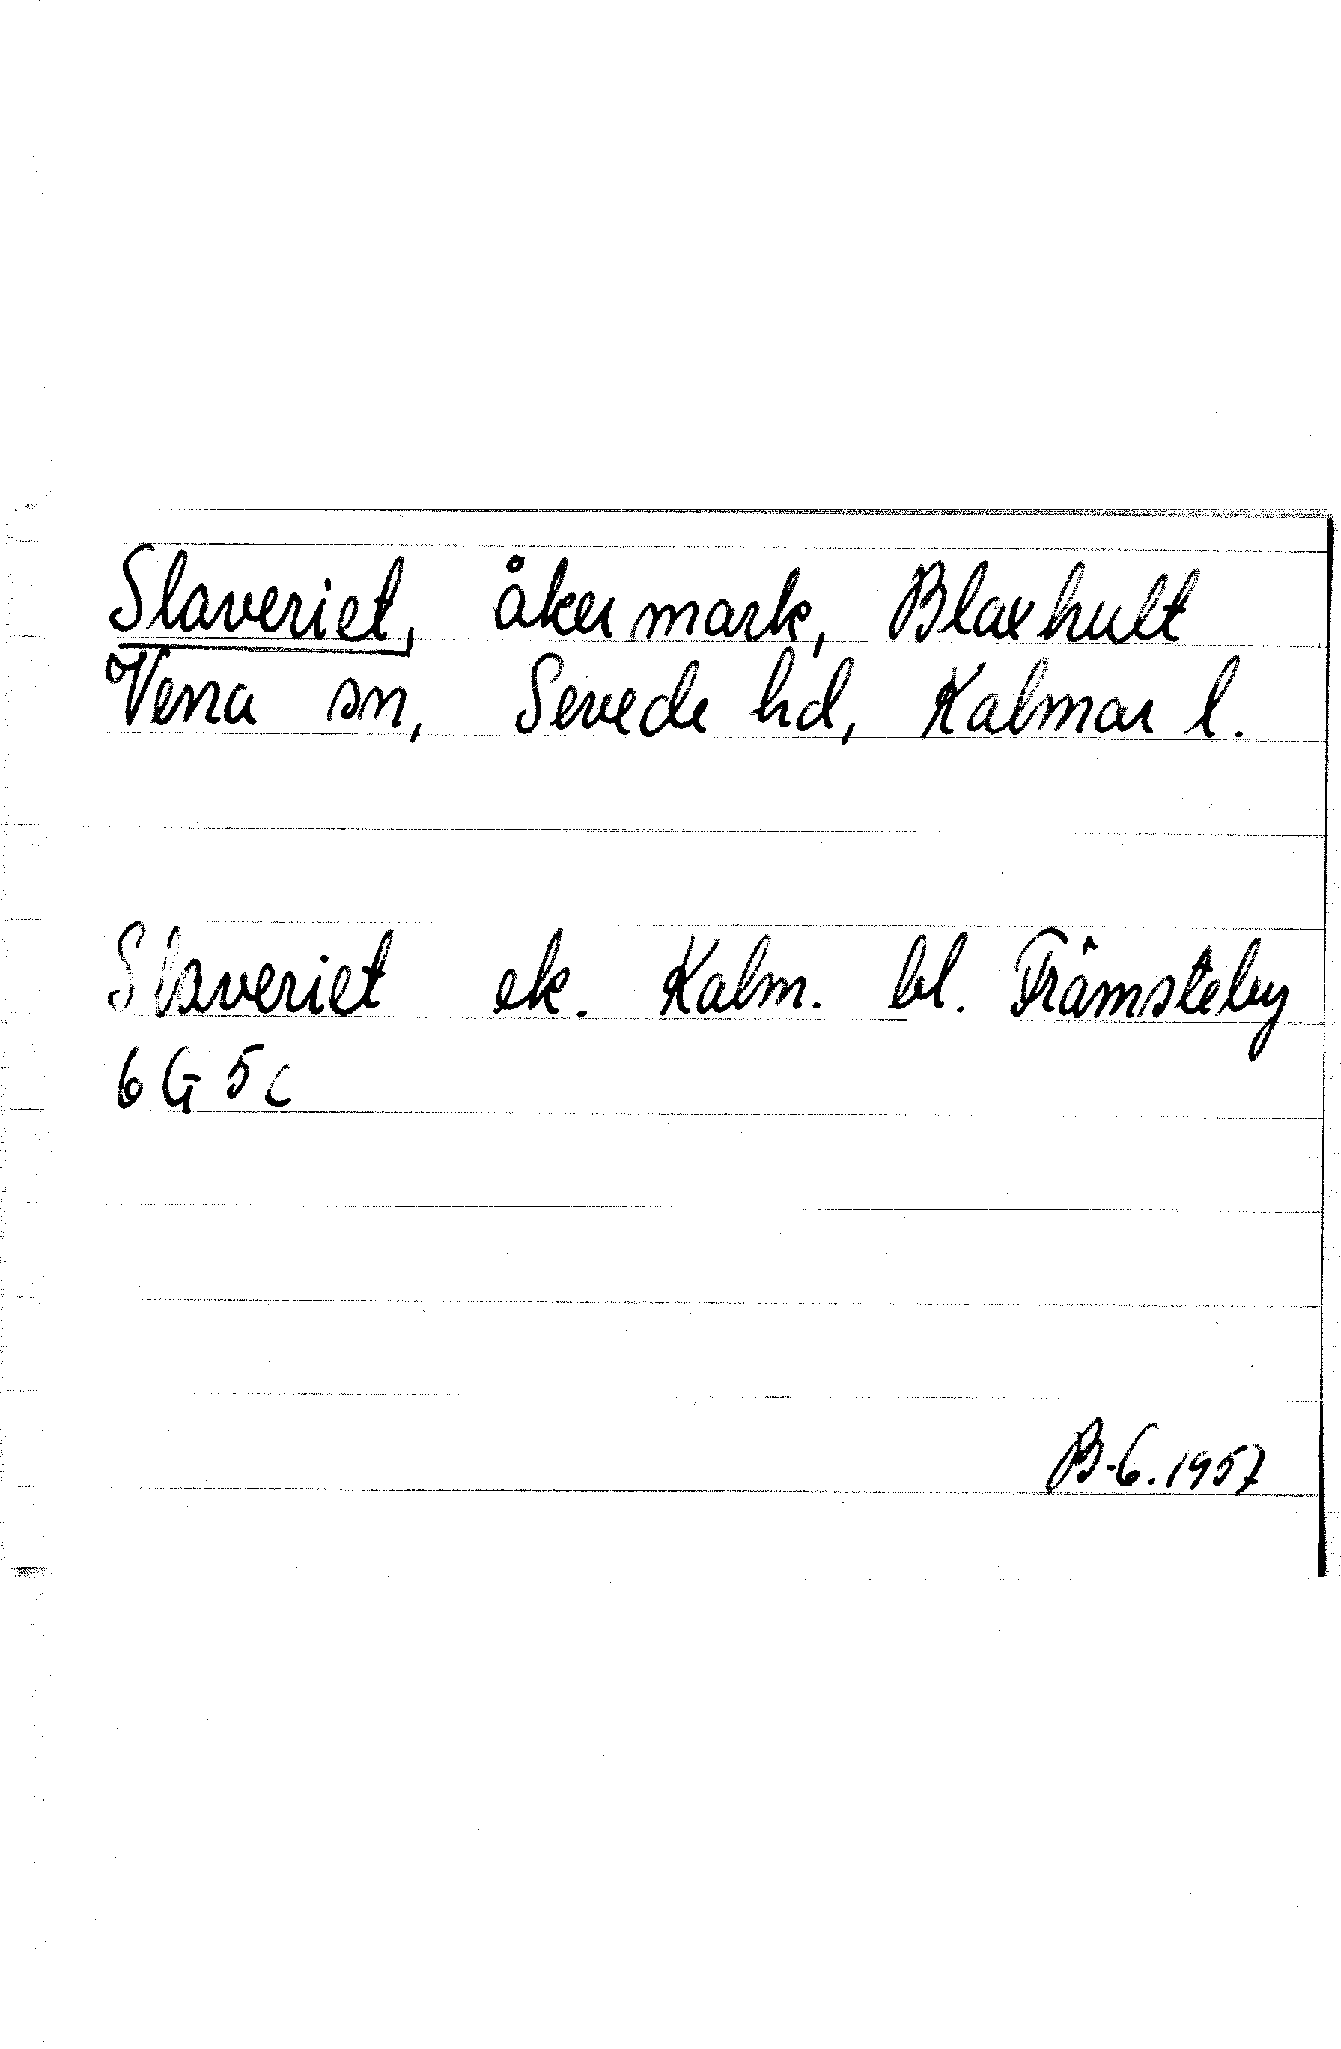 Slaveriet, åkermark, Blaxhult
Vena sn, Sevede hd, Kalmar l.
Slaveriet ek. Kalm. bl. Trämsteby
6 G 5 c
B-G. 1957